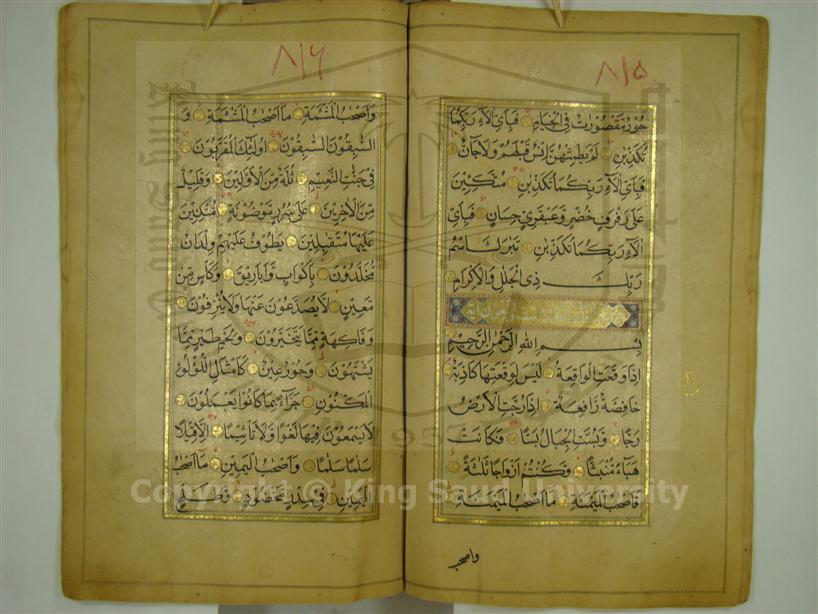 ٨١٥
حُورٌ مَقْصُورٰتٌ فِى الْخِيَامِ فَبِاَىِّ اٰلَآءِ رَبِّكُمَا
تُكَذِّبٰنِ لَمْ يَطْمِثْهُنَّ اِنْسٌ قَبْلَهُمْ وَلَاجَآنٌّ
فَبِاَىِّ اٰلَآءِ رَبِّكُمَا تُكَذِّبٰنِ مُتَّكِـِٔينَ
عَلٰى رَفْرَفٍ خُضْرٍ وَعَبْقَرِىٍّ حِسَانٍ فَبِاَىِّ
اٰلَآءِ رَبِّكُمَا تُكَذِّبٰنِ تَبٰرَكَ اسْمُ
رَبِّكَ ذِى الْجَلٰلِ وَالْاِكْرَامِ
بِسْمِ اللّٰهِ الرَّحْمٰنِ الرَّحِيمِ
اِذَا وَقَعَتِ الْوَاقِعَةُ لَيْسَ لِوَقْعَتِهَا كَاذِبَةٌ
خَافِضَةٌ رَافِعَةٌ اِذَا رُجَّتِ الْاَرْضُ
رَجًّا وَبُسَّتِ الْجِبَالُ بَسًّا فَكَانَتْ
هَبَآءً مُنْبَثًّا وَكُنْتُمْ اَزْوَاجًا ثَلٰثَةً
فَاَصْحٰبُ الْمَيْمَنَةِ مَآ اَصْحٰبُ الْمَيْمَنَةِ
واصحب
٨١٦
وَاَصْحٰبُ الْمَشْـَٔمَةِ مَآ اَصْحٰبُ الْمَشْـَٔمَةِ وَ
السّٰبِقُونَ السّٰبِقُونَ اُولٰٓئِكَ الْمُقَرَّبُونَ
فِى جَنّٰتِ النَّعِيمِ ثُلَّةٌ مِنَ الْاَوَّلِينَ وَقَلِيلٌ
مِنَ الْاٰخِرِينَ عَلٰى سُرُرٍ مَوْضُونَةٍ مُتَّكِـِٔينَ
عَلَيْهَا مُتَقٰبِلِينَ يَطُوفُ عَلَيْهِمْ وِلْدَانٌ
مُخَلَّدُونَ بِاَكْوَابٍ وَاَبَارِيقَ وَكَاْسٍ مِنْ
مَعِينٍ لَا يُصَدَّعُونَ عَنْهَا وَلَا يُنْزِفُونَ
وَفَاكِهَةٍ مِمَّا يَتَخَيَّرُونَ وَلَحْمِ طَيْرٍ مِمَّا
يَشْتَهُونَ وَحُورٌ عِينٌ كَاَمْثَالِ اللُّؤْلُؤِ
الْمَكْنُونِ جَزَآءً بِمَا كَانُوا يَعْمَلُونَ
لَا يَسْمَعُونَ فِيهَا لَغْوًا وَلَا تَاْثِيمًا اِلَّا قِيلًا
سَلٰمًا سَلٰمًا وَاَصْحٰبُ الْيَمِينِ مَآ اَصْحٰبُ
الْيَمِينِ فِى سِدْرٍ مَخْضُودٍ وَطَلْحٍ
Copyright © King Saud University